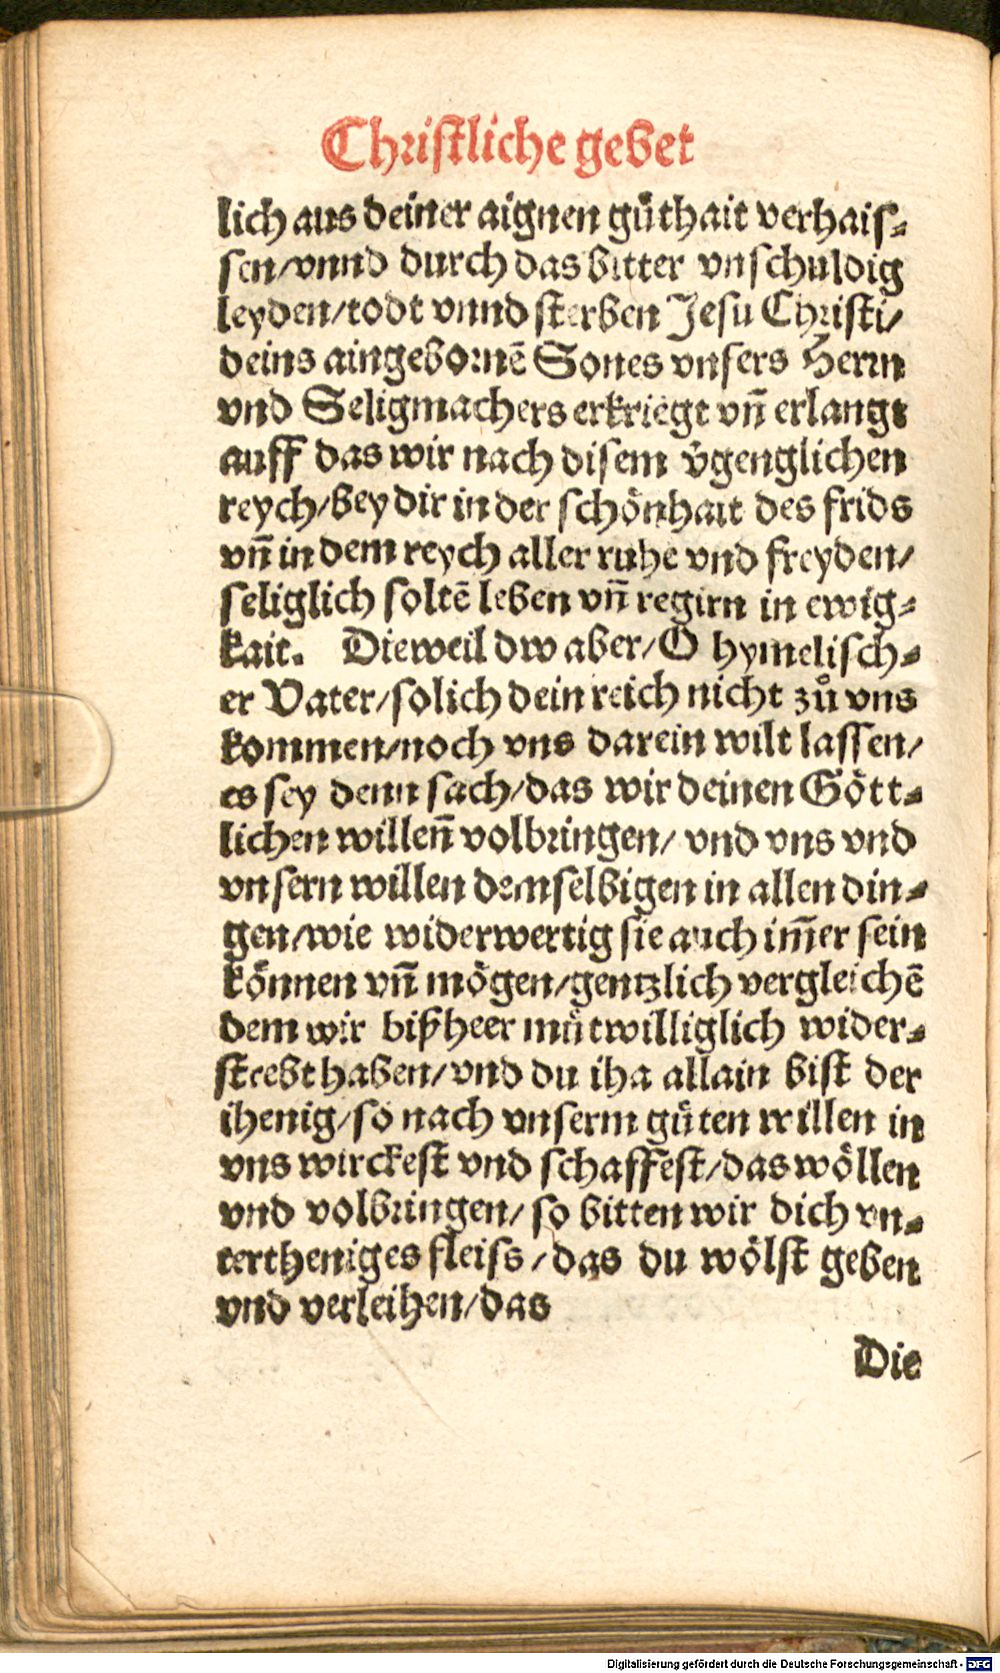 Christliche gebet
lich aus deiner aignen gůthait verhais⸗
sen/vnnd durch das bitter vnschuldig
leyden/todt vnnd sterben Jesu Christi/
deins aingebornē Sones vnsers Herrn
vnd Seligmachers erkriegt vñ erlangt
auff das wir nach disem v̈genglichen
reych/bey dir in der schönhait des frids
vñ in dem reych aller ruhe vnd freyden/
seliglich soltē leben vñ regirn in ewig⸗
kait. Dieweil dw aber/O hymelisch⸗
er Vater/solich dein reich nicht zů vns
kommen/noch vns darein wilt lassen/
es sey denn sach/das wir deinen Gött⸗
lichen willeñ volbringen/ vnd vns vnd
vnsern willen demselbigen in allen din⸗
gen/wie widerwertig sie auch im̄er sein
können vñ mögen/gentzlich vergleichē
dem wir bißheer můtwilliglich wider⸗
strebt haben/vnd du iha allain bist der
ihenig/so nach vnserm gůten willen in
vns wirckest vnd schaffest/das wöllen
vnd volbringen/ so bitten wir dich vn⸗
tertheniges fleiss/das du wölst geben
vnd verleihen/das
Die
Digitalisierung gefördert durch die Deutsche Forschungsgemeinschaft - DFG